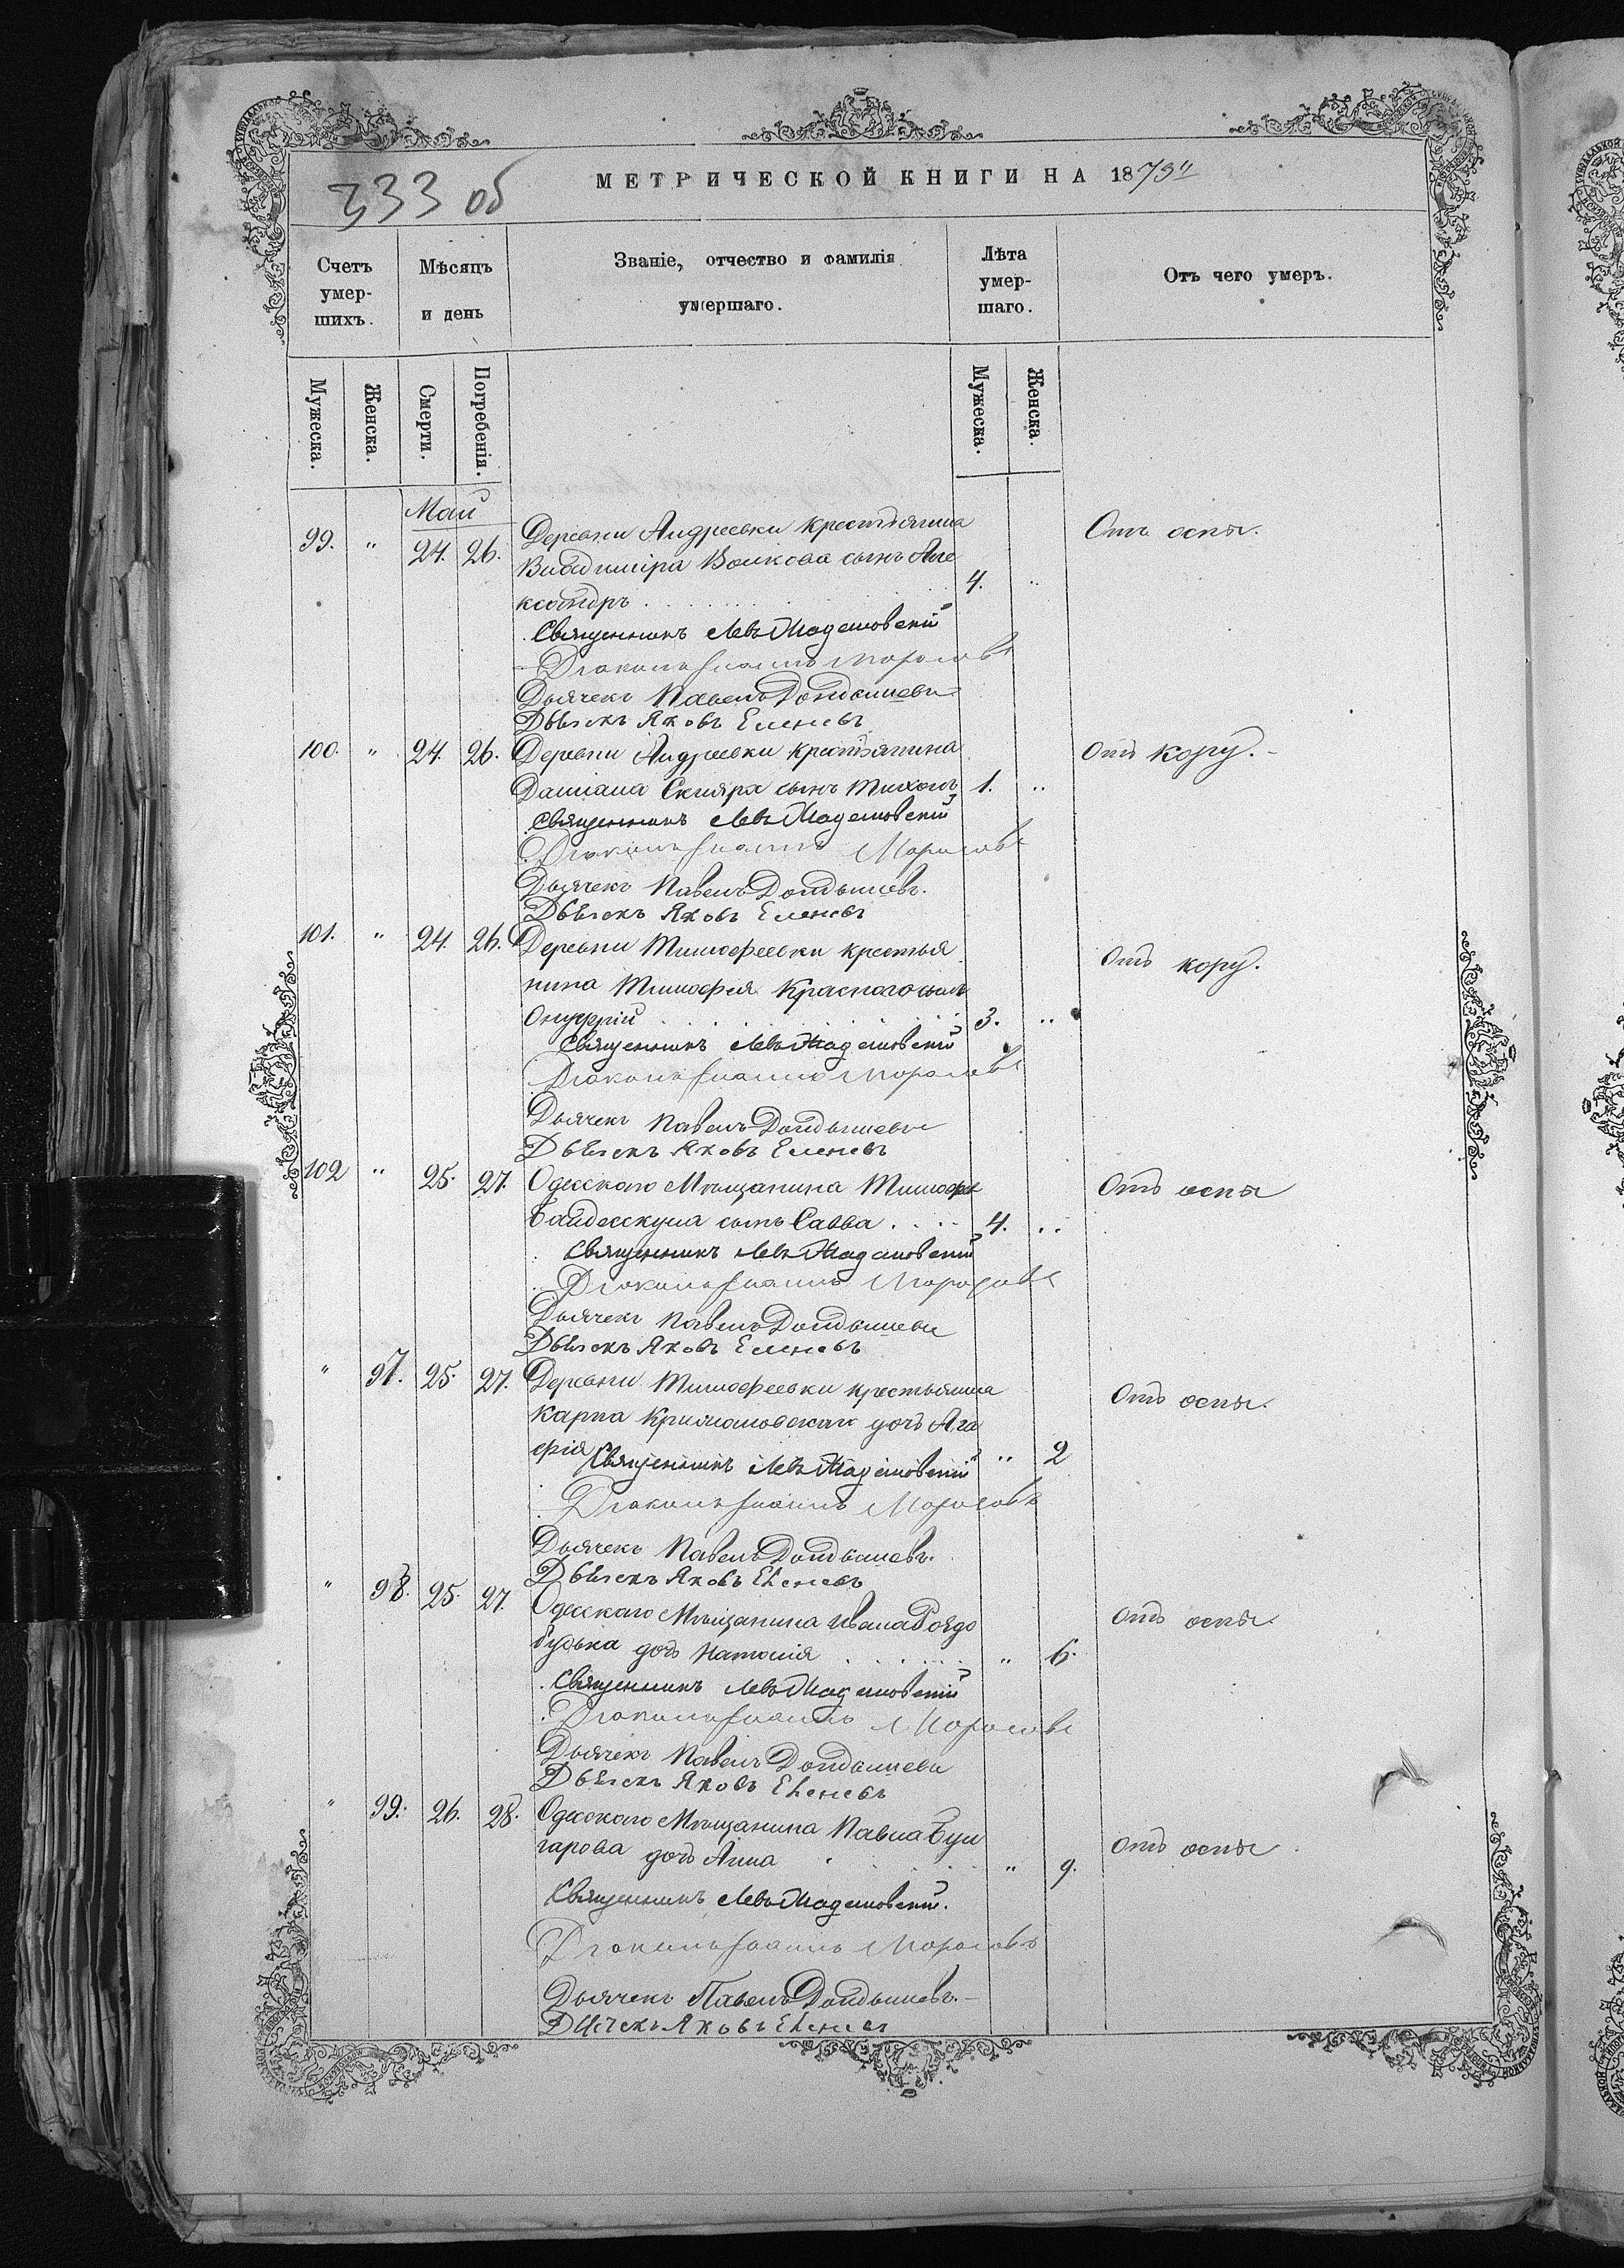 333 об
МЕТРИЧЕСКОЙ КНИГИ НА 1873й
Счетъ умер-шихъ.
Мѣсяцъ и день
Званіе, отчество и фамилія умершаго.
Лѣта умер-шаго.
Отъ чего умеръ.
Мужеска. Женска. Смерти. Погребенія. Мужеска. Женска.
Май
99. " 24. 26. Деревни Андреевки крестьянина Отъ оспы.
Владиміра Волкова сынъ Але
ксандръ 4. "
Священникъ Левъ
Діаконъ Іоаннъ Морозовъ
Дьячекъ Павелъ
Дьячекъ Яковъ Еленевъ
100. " 24. 26. Деревни Андреевки крестьянина Отъ кору.
Даміана Скляра сынъ Тихонъ 1. "
Священникъ Левъ
Діаконъ Іоаннъ Морозовъ
Дьячекъ Павелъ
Дьячекъ Яковъ Еленевъ
101. " 24. 26. Деревни Тимофеевки крестья Отъ кору.
нина Тимофея Краснаго сынъ
Онуфрій 3. "
Священникъ Левъ
Діаконъ Іоаннъ Морозовъ
Дьячекъ Павелъ
Дьячекъ Яковъ Еленевъ
102 " 25. 27. Одесскаго Мѣщанина Тимофея Отъ оспы
сынъ Савва 4. "
Священникъ Левъ
Діаконъ Іоаннъ Морозовъ
Дьячекъ Павелъ
Дьячекъ Яковъ Еленевъ
" 97. 25. 27. Деревни Тимофеевки крестьянина Отъ оспы.
Карпа дочь Ага
фія " 2
Священникъ Левъ
Діаконъ Іоаннъ Морозовъ
Дьячекъ Павелъ
Дьячекъ Яковъ Еленевъ
" 98. 25. 27. Одесскаго Мѣщанина Ивана Роздо Отъ оспы.
будька дочь Наталія " 6.
Священникъ Левъ
Діаконъ Іоаннъ Морозовъ
Дьячекъ Павелъ
Дьячекъ Яковъ Еленевъ
" 99. 26. 28. Одесскаго Мѣщанина Павла Бул Отъ оспы
гарова дочь Анна " 9.
Священникъ Левъ
Діаконъ Іоаннъ Морозовъ
Дьячекъ Павелъ
Дьячекъ Яковъ Еленевъ